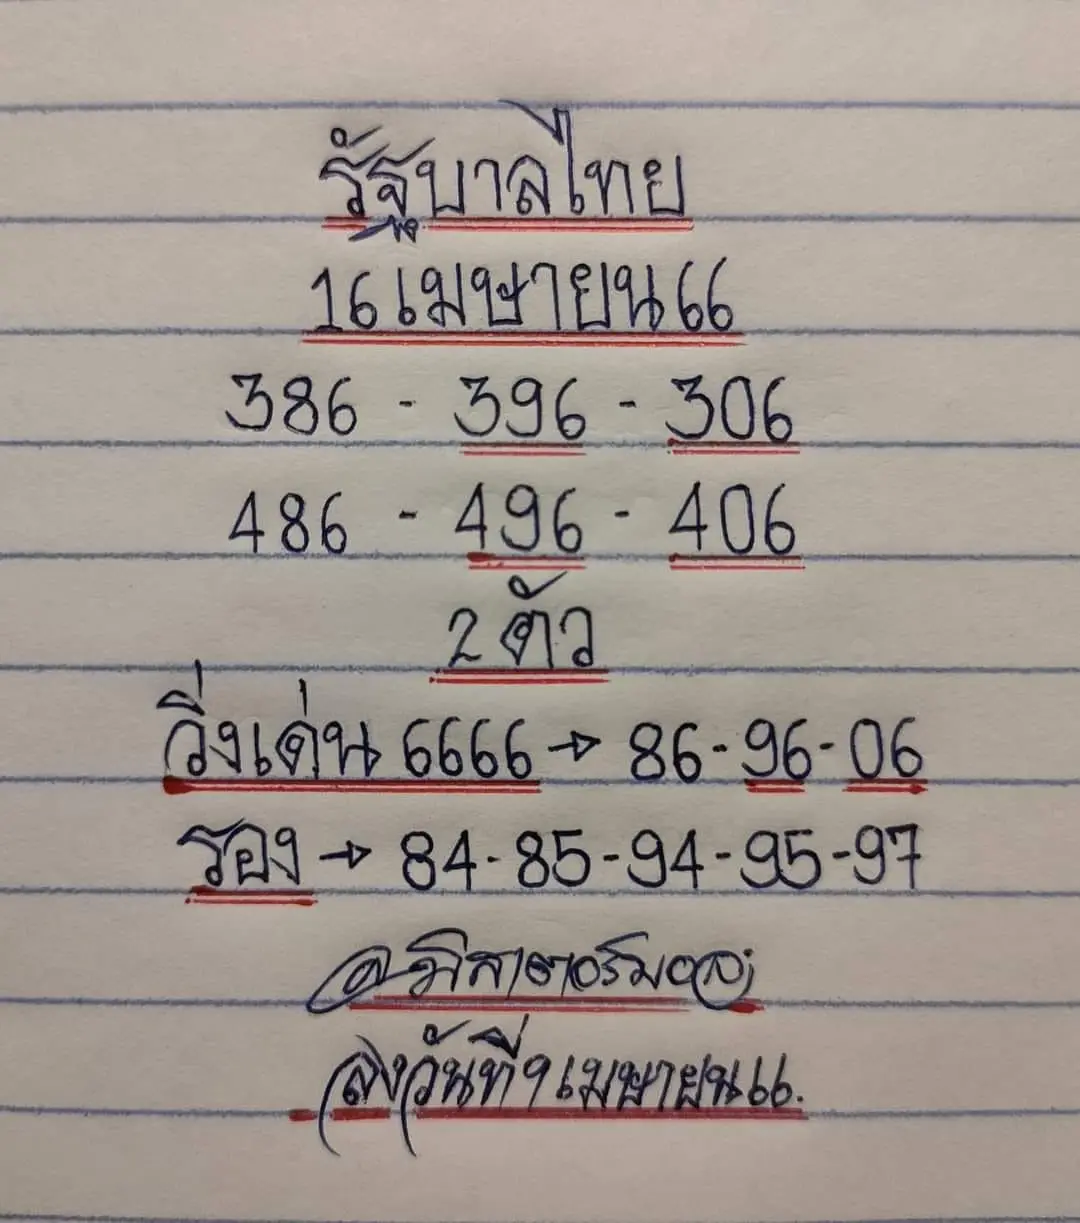 รัฐบาลไทย
16 เมษายน 66
386 - 396 - 306
486 - 496 - 406
2 ตัว
วิ่งเด่น 6666 → 86-96-06
รอง → 84-85-94-95-97
ลงวันที่ 9 เมษายน 66.